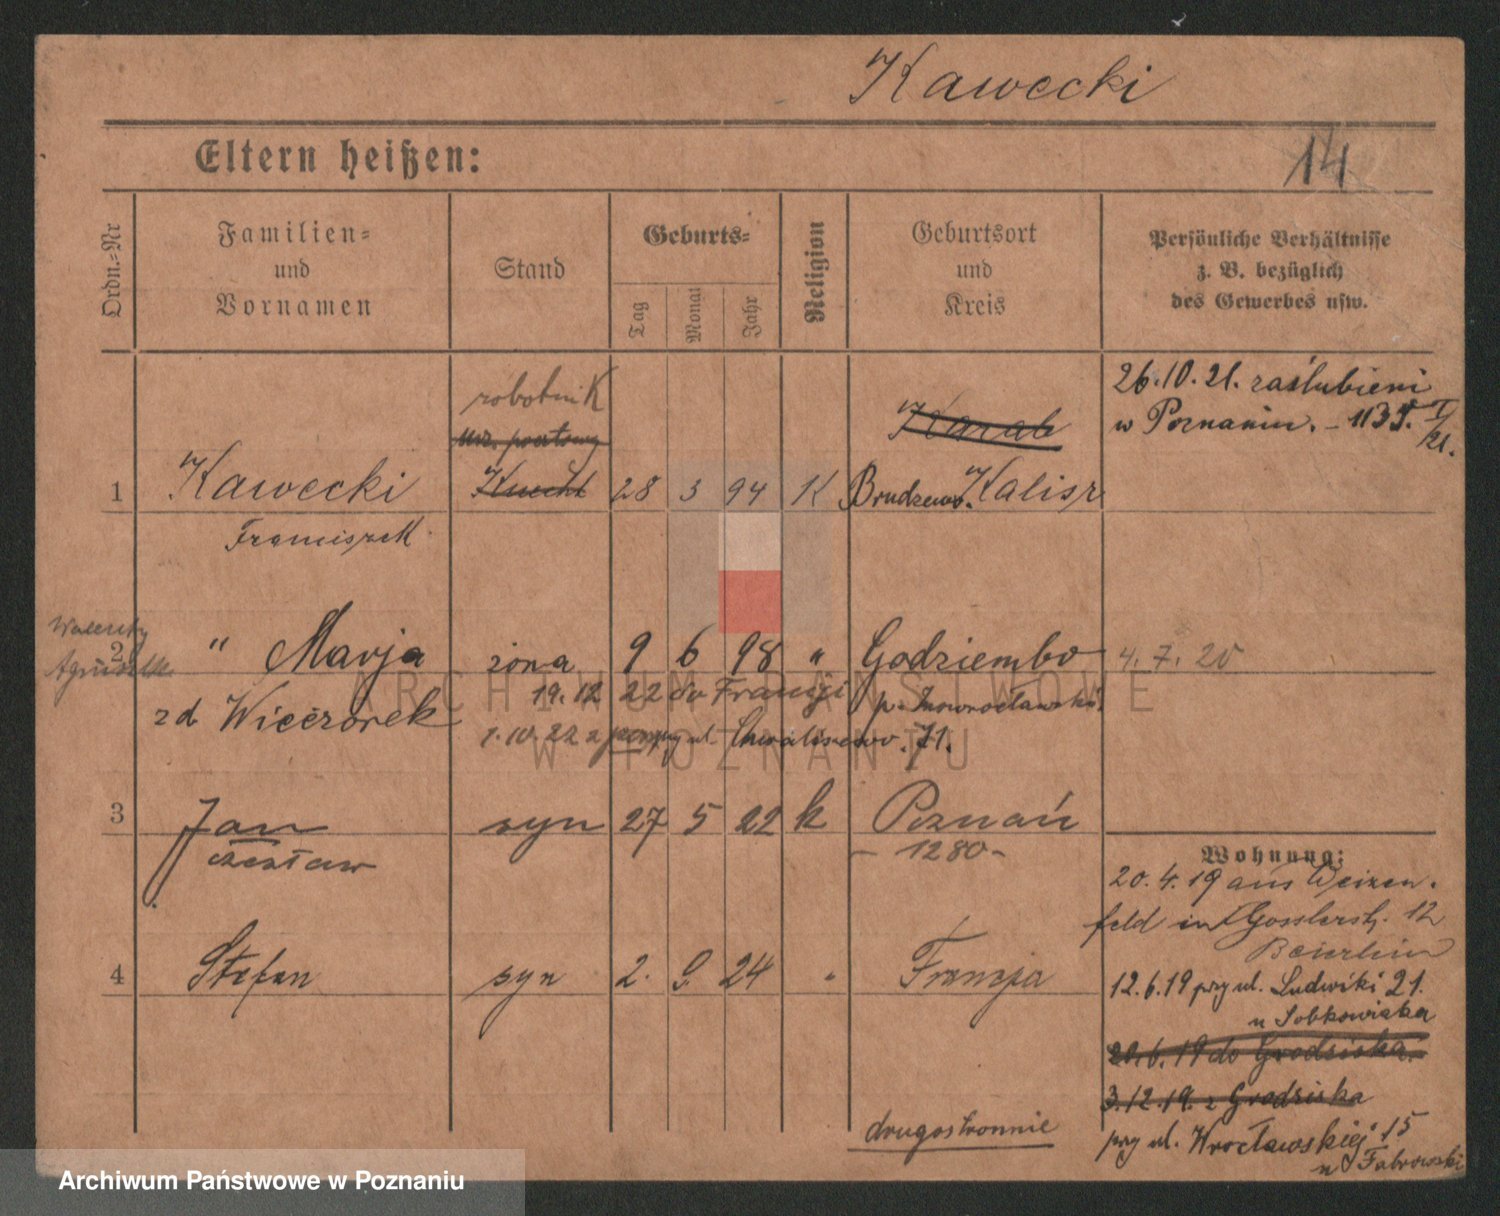 Kawecki
Eltern heißen:
14
Ordn.-Nr
Familien-
und
Vornamen
Stand
Geburts-
Tag
Monat
Jahr
Religion
Geburtsort
und
Kreis
Persönliche Verhältnisse
z. B. bezüglich
des Gewerbes usw.
26.10.21. zaślubieni
w Poznaniu. - 1135. I/21.
robotnik
urz. pocztowy
1 Kawecki Knecht 28 3 94 K Brudzewo. Kalisz
Franciszek
2 " Marja żona 9 6 98 " Godziembo 4.7.20
19.12 22 do Francji
p. Inowrocławski.
zd Wieczorek
1.10.22 z przy ul. Chwaliszewo. 71.
3 Jan syn 27 5 22 k Poznań
Czesław - 1280 -
Wohnung:
20.4.19 aus Weizen-
feld in Gosslerstr. 12
Beierlein
4 Stefan syn 2. 9. 24 " Francja
12.6.19 przy ul. Ludwiki 21.
u Sobkowiaka
20.6.19 do Grodziska.
3.12.19. z Grodziska
drugostronnie
przy ul. Wrocławskiej 15
u Fabrowski
ARCHIWUM PAŃSTWOWE
W POZNANIU
Archiwum Państwowe w Poznaniu